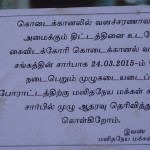 கொடைக்கானலில் வனச்சரணால
அமைக்கும் திட்டத்தினை உடனே
கைவிடக்கோரி கொடைக்கானல் வ
சங்கத்தின் சார்பாக 24.03.2015-ம்
நடைபெறும் முழுகடையடைப்
போராட்டத்திற்கு மனிதநேய மக்கள் க
சார்பில் முழு ஆதரவு தெரிவித்து
கொள்கிறோம்.
இவண்
மனிதநேய மக்கள்